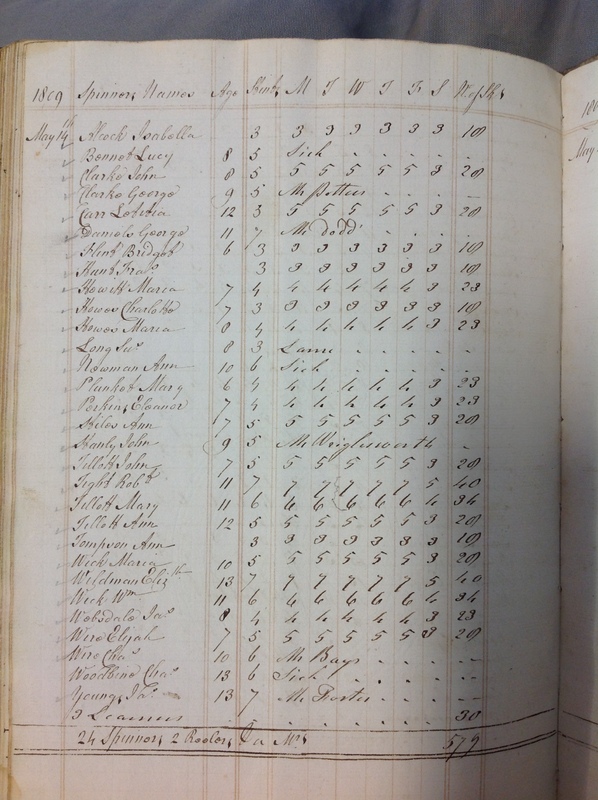 1809 Spinners Names Age Stint M T W T F S No of Sks
May 14th Alcock Isabella 3 3 3 3 3 3 3 18
Bennet Lucy 8 5 Sick
Clarke John 8 5 5 5 5 5 5 3 28
Clarke George 9 5 Mr
Carr Letitia 12 3 5 5 5 5 5 3 28
Daniels George 11 7 Mr Dodd
Flint Bridget 6 3 3 3 3 3 3 3 18
Hunt Fras 3 3 3 3 3 3 3 18
Hewitt Maria 7 4 4 4 4 4 4 3 23
Howes Charlotte 7 3 3 3 3 3 3 3 18
Howes Maria 8 4 4 4 4 4 4 3 23
Long Sus 8 3 Lame
Newman Ann 10 6 Sick
Plunket Mary 6 4 4 4 4 4 4 3 23
Perkins Eleanor 7 4 4 4 4 4 4 3 23
Stiles Ann 7 5 5 5 5 5 5 3 28
Stanly John 9 5 Mr Wriglesworth
Tillott John 7 5 5 5 5 5 5 3 28
Tight Robt 11 7 7 7 7 7 7 5 40
Tillott Mary 11 6 6 6 6 6 6 4 34
Tillott Ann 12 5 5 5 5 5 5 3 28
Tompson Ann 3 3 3 3 3 3 3 18
Wick Maria 10 5 5 5 5 5 5 3 28
Wildman Elizth 13 7 7 7 7 7 7 5 40
Wick Wm 11 6 6 6 6 6 6 4 34
Wobsdale Jas 8 4 4 4 4 4 4 3 23
Wire Elijah 7 5 5 5 5 5 5 3 28
Wire Chas 10 6 Mr Bays
Woodbine Chas 13 6 Sick
Young Jas 13 7 Mr Foster
3 Learners 30
24 Spinners 2 Reelers 579
180
May